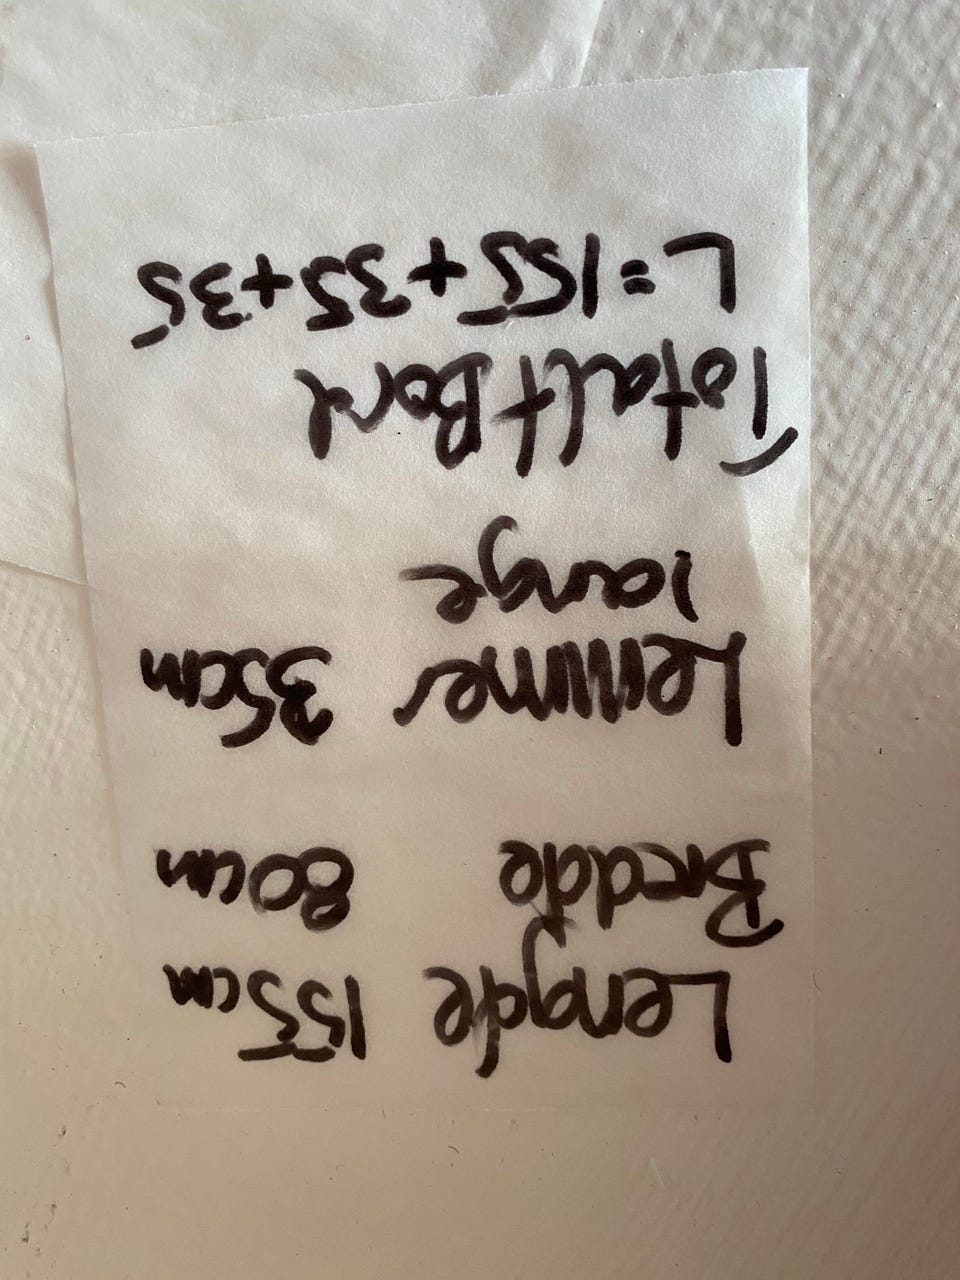 Lengde 155cm
Bredde 80cm
Lemmer 35cm
lange
Totalt Bord
L=155+35+35